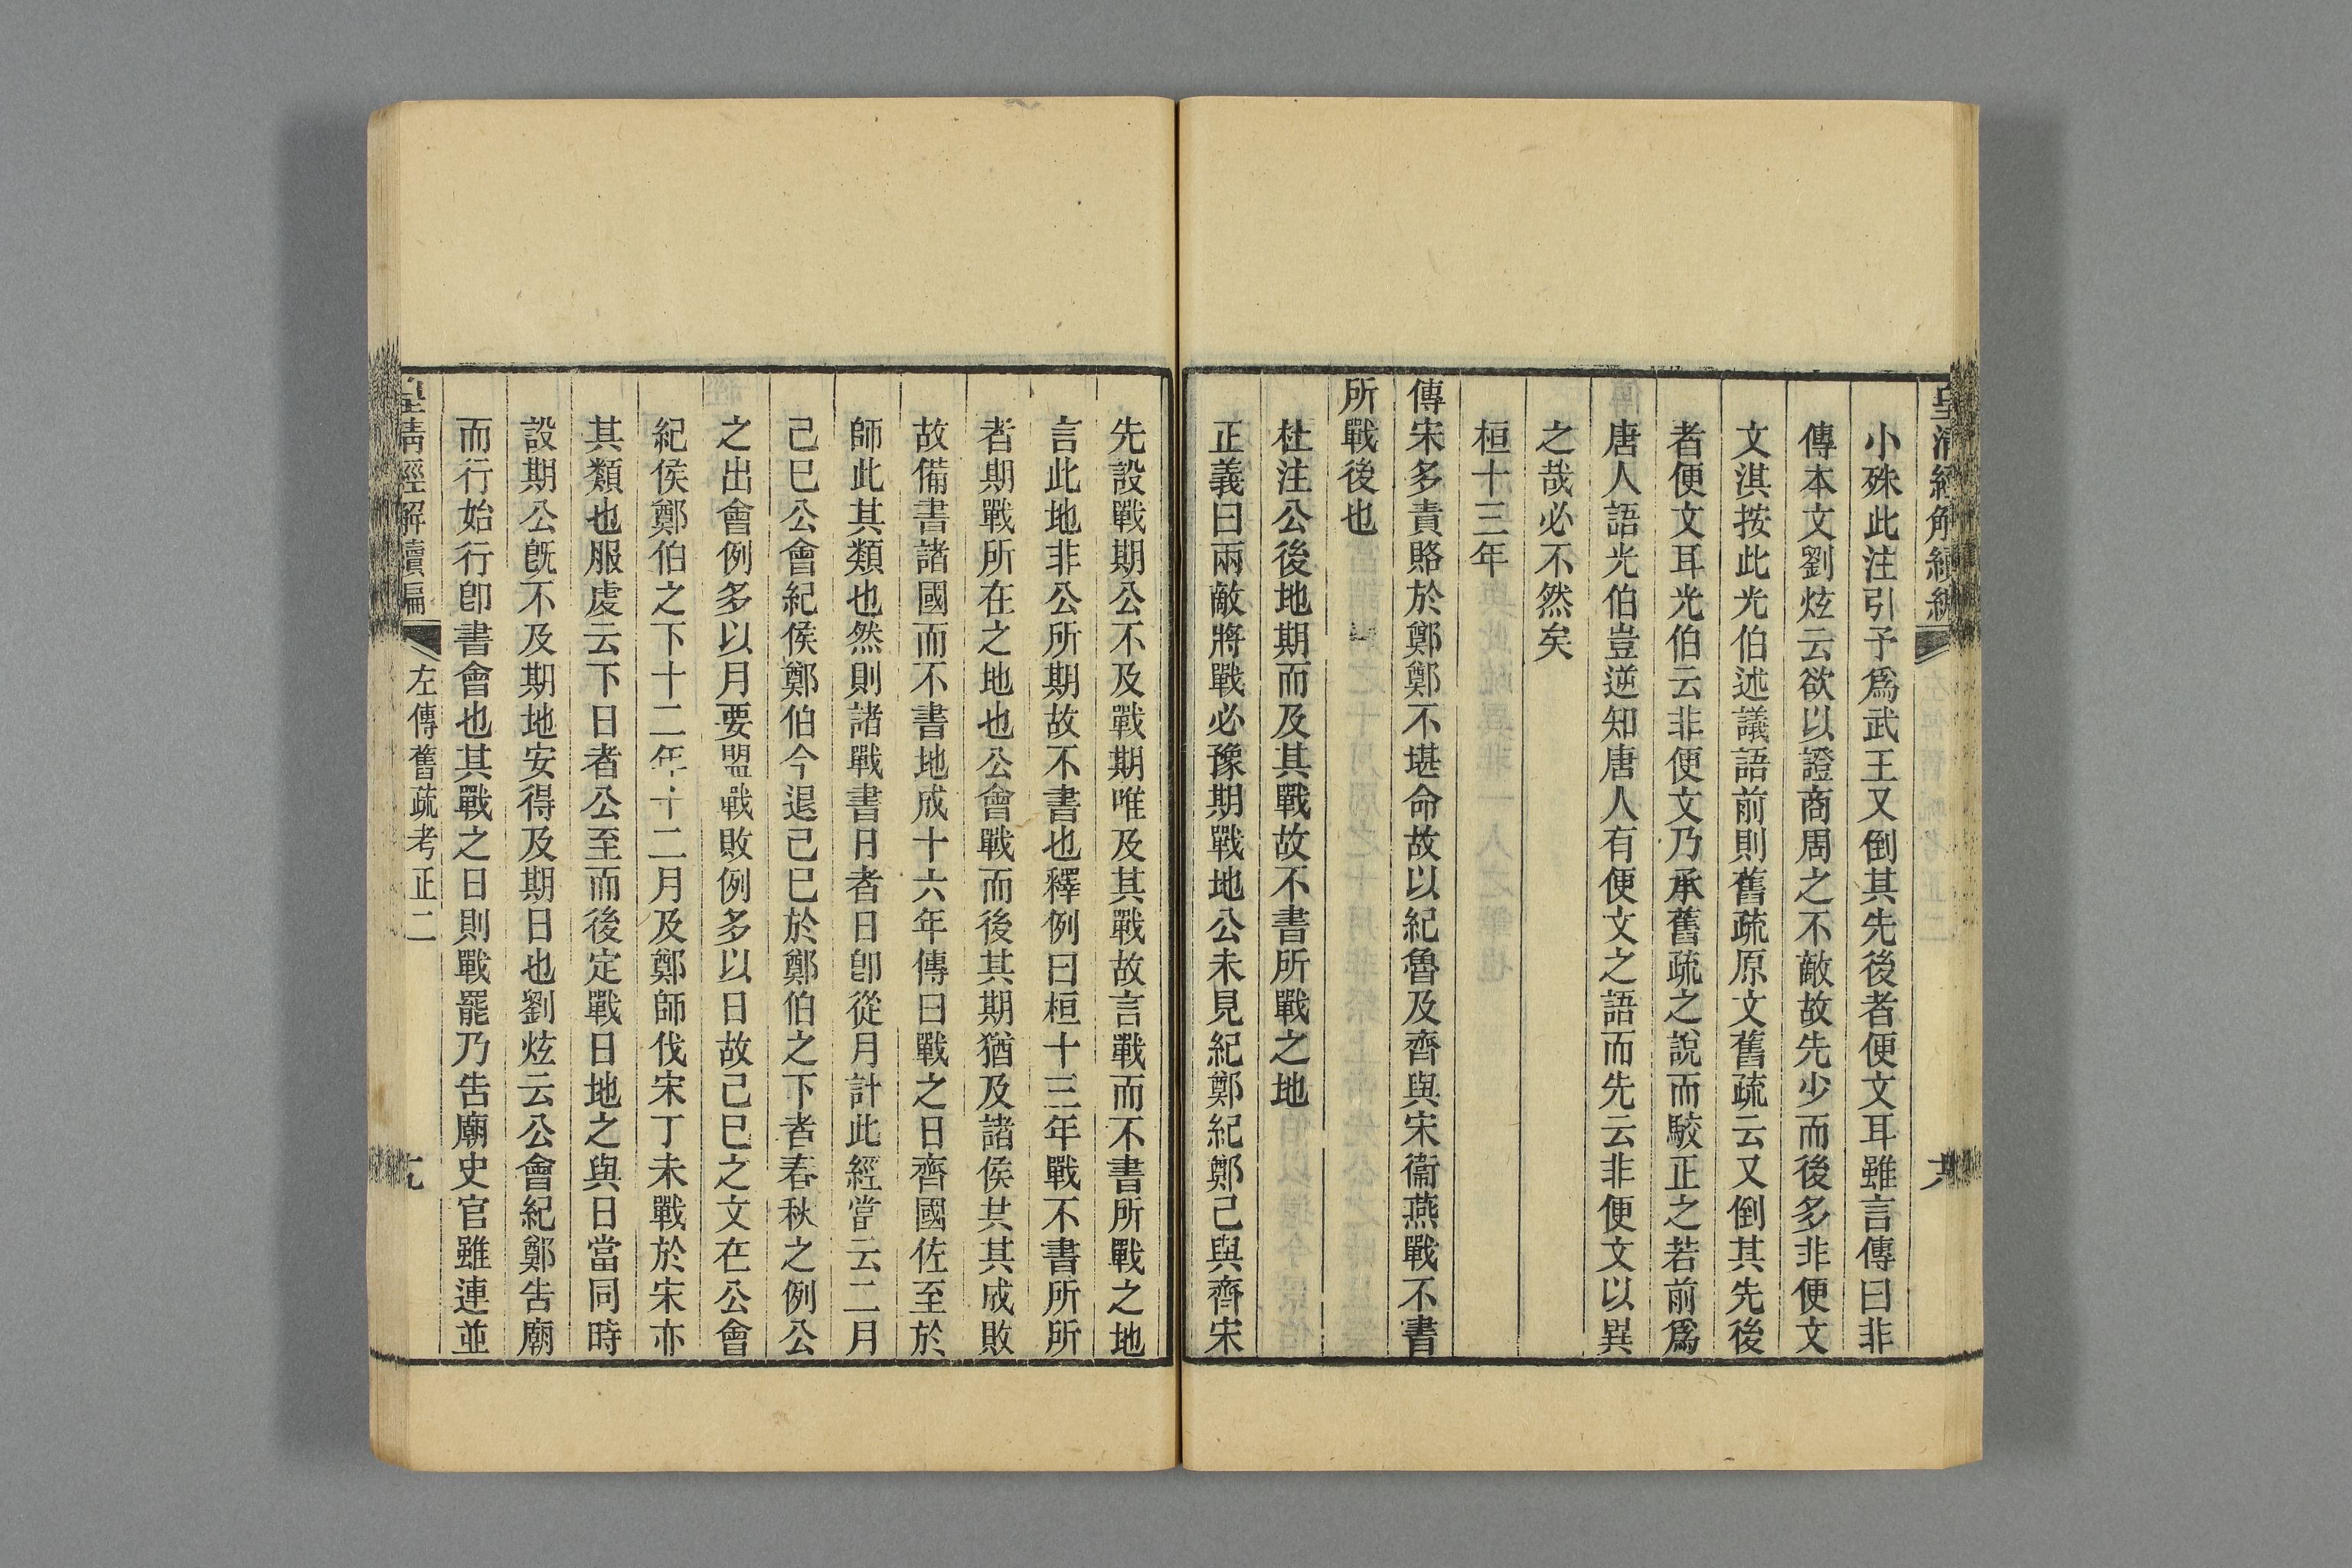 小殊此注引予爲武王又倒其先後者便文耳雖言傳曰非
傳本文劉炫云欲以證商周之不敵故先少而後多非便文
文淇按此光伯述議語前則舊疏原文舊疏云又倒其先後
者便文耳光伯云非便文乃承舊疏之說而駮正之若前爲
唐人語光伯豈逆知唐人有便文之語而先云非便文以異
之哉必不然矣
桓十三年
傳宋多責賂於鄭鄭不堪命故以紀魯及齊與宋衞燕戰不書
所戰後也
杜注公後地期而及其戰故不書所戰之地
正義曰兩敵將戰必豫期戰地公未見紀鄭紀鄭己與齊宋
先設戰期公不及戰期唯及其戰故言戰而不書所戰之地
言此地非公所期故不書也釋例曰桓十三年戰不書所所
者期戰所在之地也公會戰而後其期猶及諸侯共其成敗
故備書諸國而不書地成十六年傳曰戰之日齊國佐至於
師此其類也然則諸戰書日者日卽從月計此經當云二月
己巳公會紀侯鄭伯今退己巳於鄭伯之下者春秋之例公
之出會例多以月要盟戰敗例多以日故己巳之文在公會
紀侯鄭伯之下十二年十二月及鄭師伐宋丁未戰於宋亦
其類也服虔云下日者公至而後定戰日地之與日當同時
設期公旣不及期地安得及期日也劉炫云公會紀鄭告廟
而行始行卽書會也其戰之日則戰罷乃告廟史官雖連並
皇淸經解續編 左傳舊疏考正二